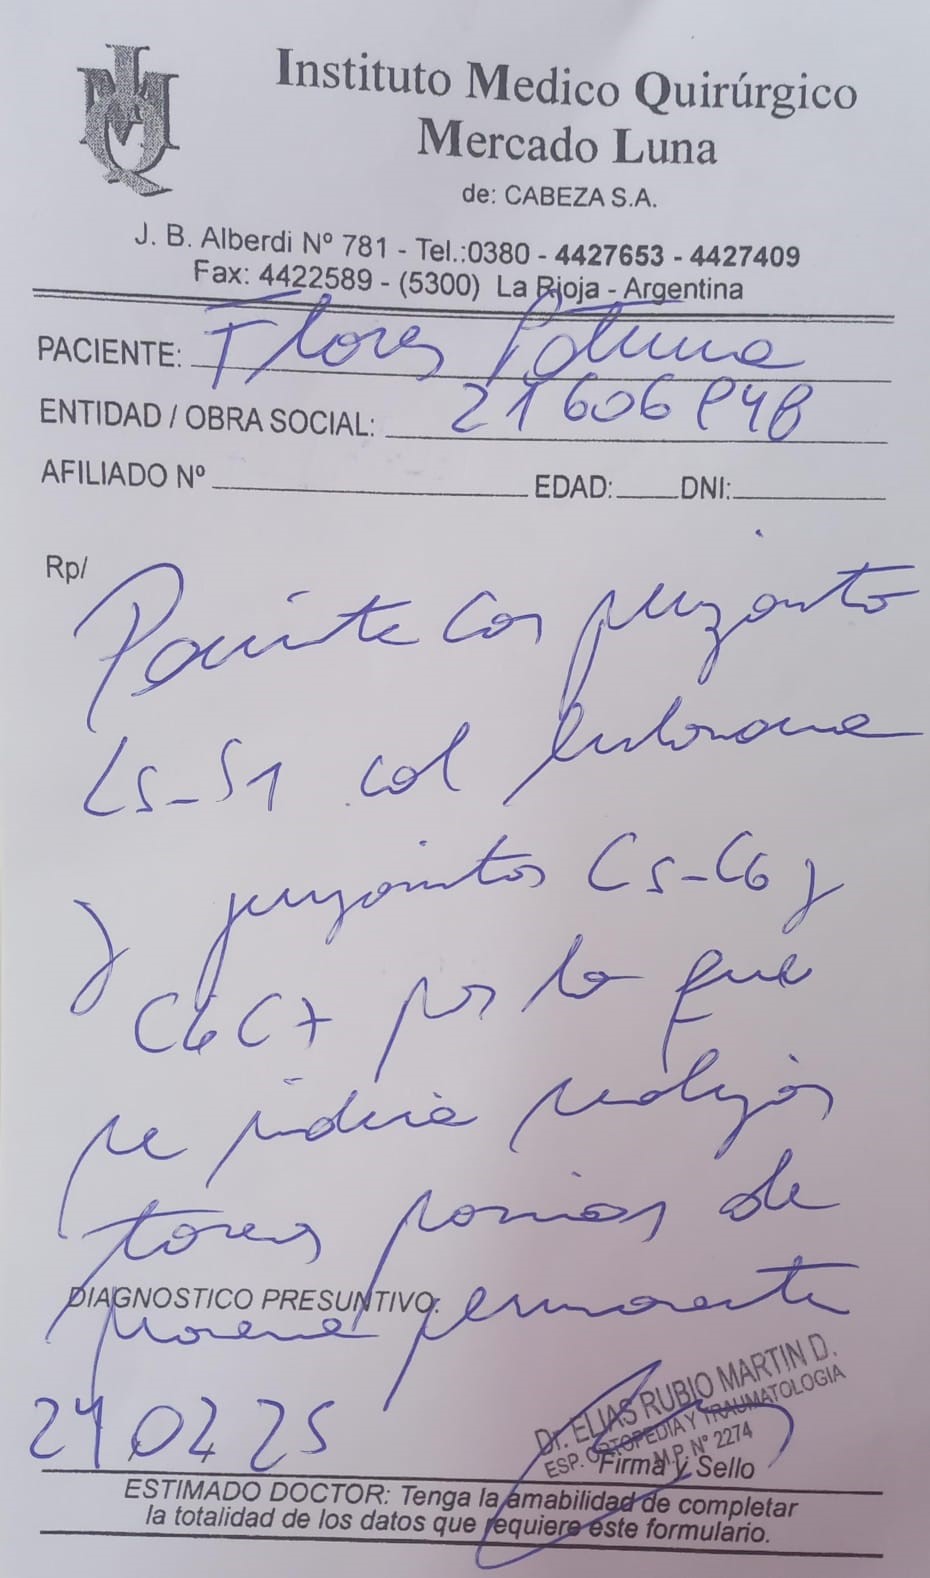 Instituto Medico Quirúrgico
Mercado Luna
de: CABEZA S.A.
J. B. Alberdi Nº 781 - Tel.:0380 - 4427653 - 4427409
Fax: 4422589 - (5300) La Rioja - Argentina
PACIENTE: Flores
ENTIDAD / OBRA SOCIAL: 21606848
AFILIADO Nº EDAD: DNI:
Rp/
Paciente con pinzamiento
L5-S1 col lumbosacra
y pinzamientos C5-C6 y
C6C7 por lo que
se indica
tareas pasivas de
DIAGNOSTICO PRESUNTIVO:
manera permanente
24 02 25
Dr. ELIAS RUBIO MARTIN D.
ESP. ORTOPEDIA Y TRAUMATOLOGIA
M.P. Nº 2274
Firma y Sello
ESTIMADO DOCTOR: Tenga la amabilidad de completar
la totalidad de los datos que requiere este formulario.